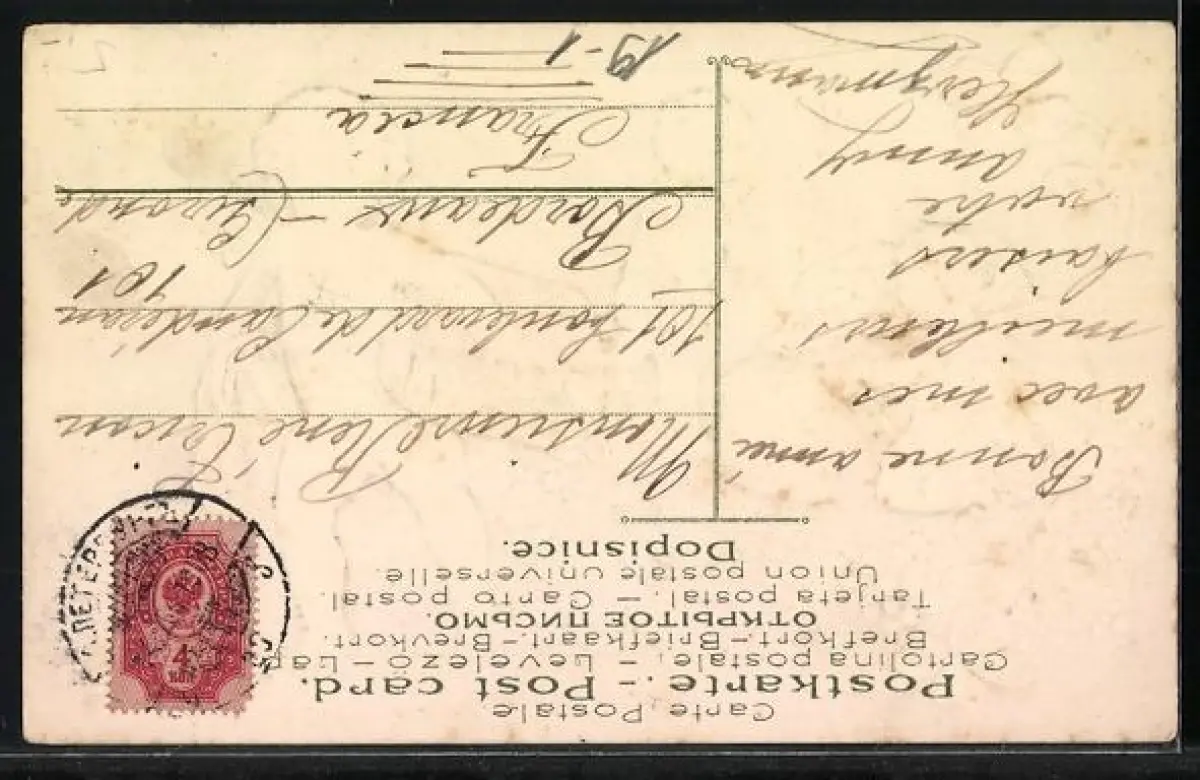 Carte Postale
Postkarte. - Post card.
Cartolina postale. - Levelező - Lap
Brefkort. - Briefkaart. - Brevkort.
ОТКРЫТОЕ ПИСЬМО.
Tarjeta postal. - Carto postal.
Union postale universelle.
Dopisnice.
Bonne anné
avec mes
meilleurs
baisers
votre
Anny
Monsieur René
101 boulevard de Caudéran
101
Bordeaux - (Girond
Francia
19-1
4
КОП